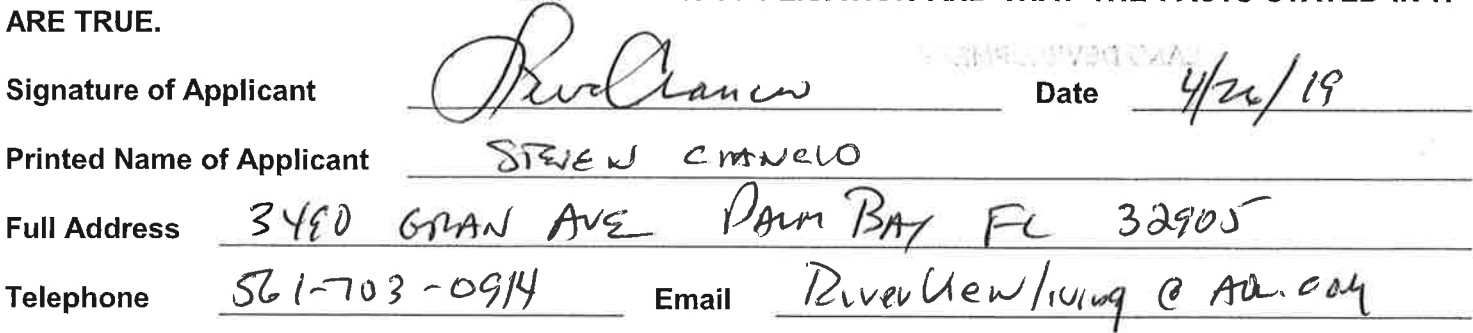 ARE TRUE.
Signature of Applicant Date 4/26/19
Printed Name of Applicant STEVEN
Full Address 3490 GRAN AVE PALM BAY FL 32905
Telephone 561-703-0914 Email Riverviewliving@AOL.com